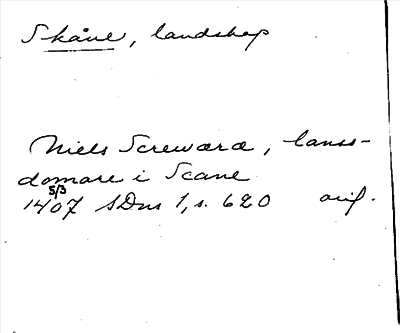 Skåne, landskap
Niels Screwaræ, lanss-
domare i Scane
1407 5/3 SDns 1, s. 620 orig.